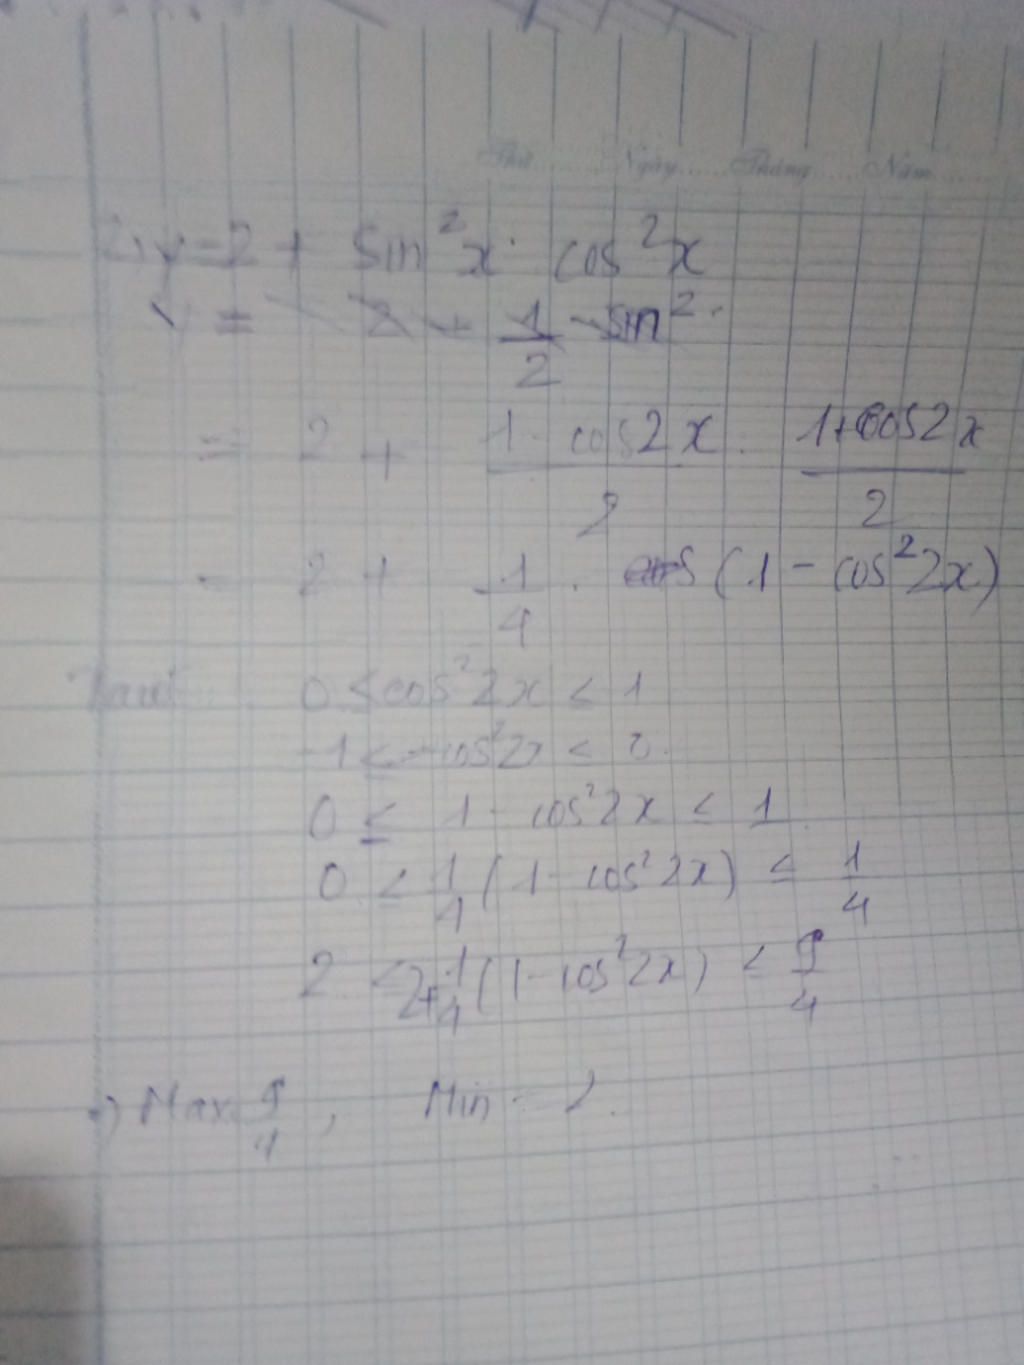 Thứ Ngày Tháng Năm
2, y = 2 + sin²x . cos²x
y = 2 + 1/2 sin² .
= 2 + (1 - cos2x)/2 . (1 + cos2x)/2
= 2 + 1/4 . (1 - cos²2x)
0 ≤ cos²2x ≤ 1
-1 ≤ -cos²2x ≤ 0
0 ≤ 1 - cos²2x ≤ 1
0 ≤ 1/4 (1 - cos²2x) ≤ 1/4
2 ≤ 2 + 1/4 (1 - cos²2x) ≤ 9/4
Max = 9/4 , Min = 2.